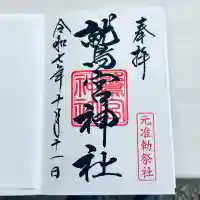 奉拝
元准勅祭社
鷲宮神社
令和七年十月十一日